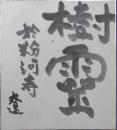 樹霊
於粉河寺